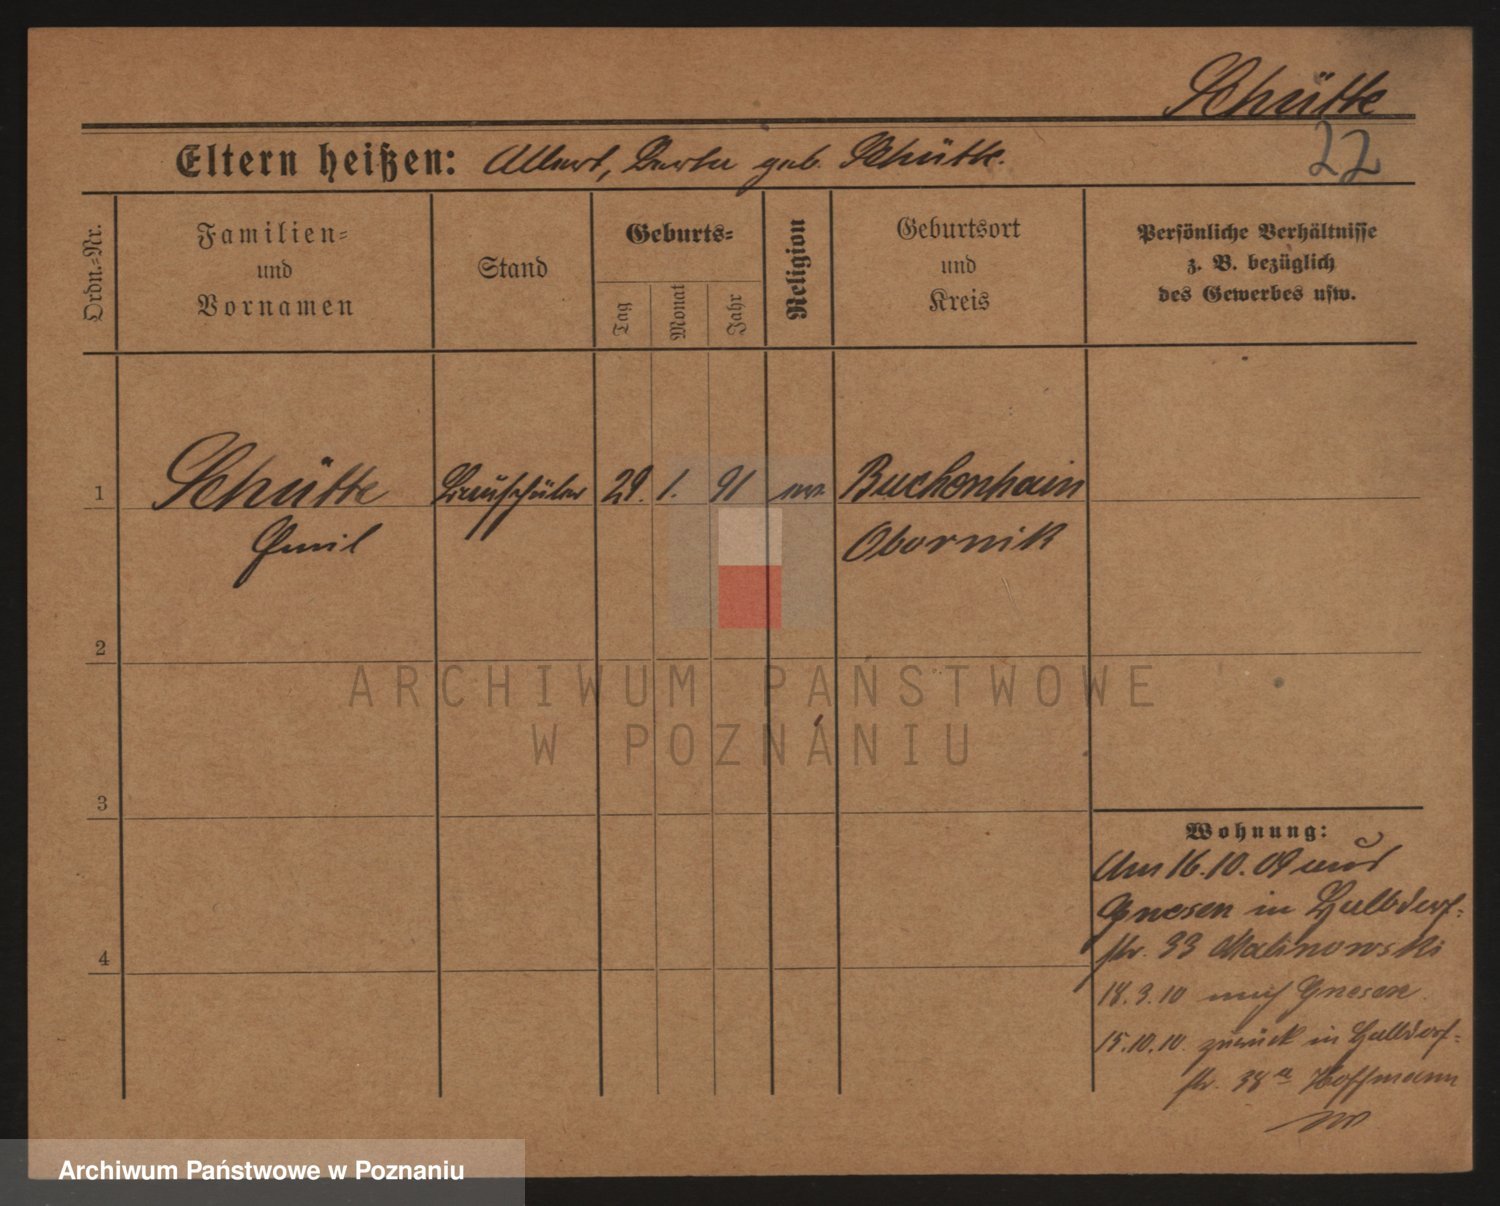 Schütte
22
Eltern heißen: Albert, Berta geb. Schütte.
Ordn.-Nr.
Familien-
und
Vornamen
Stand
Geburts-
Tag
Monat
Jahr
Religion
Geburtsort
und
Kreis
Persönliche Verhältnisse
z. B. bezüglich
des Gewerbes usw.
1 Schütte Bauschüler 29. 1. 91 ev. Buchenhain
Emil Obornik
2
ARCHIWUM PAŃSTWOWE
W POZNANIU
3
Wohnung:
Am 16.10.09 aus
Gnesen in Halbdorf-
str. 33 Malinowski
4
18.3.10 nach Gnesen.
15.10.10. zurück in Halbdorf-
str. 38a Hoffmann
Archiwum Państwowe w Poznaniu